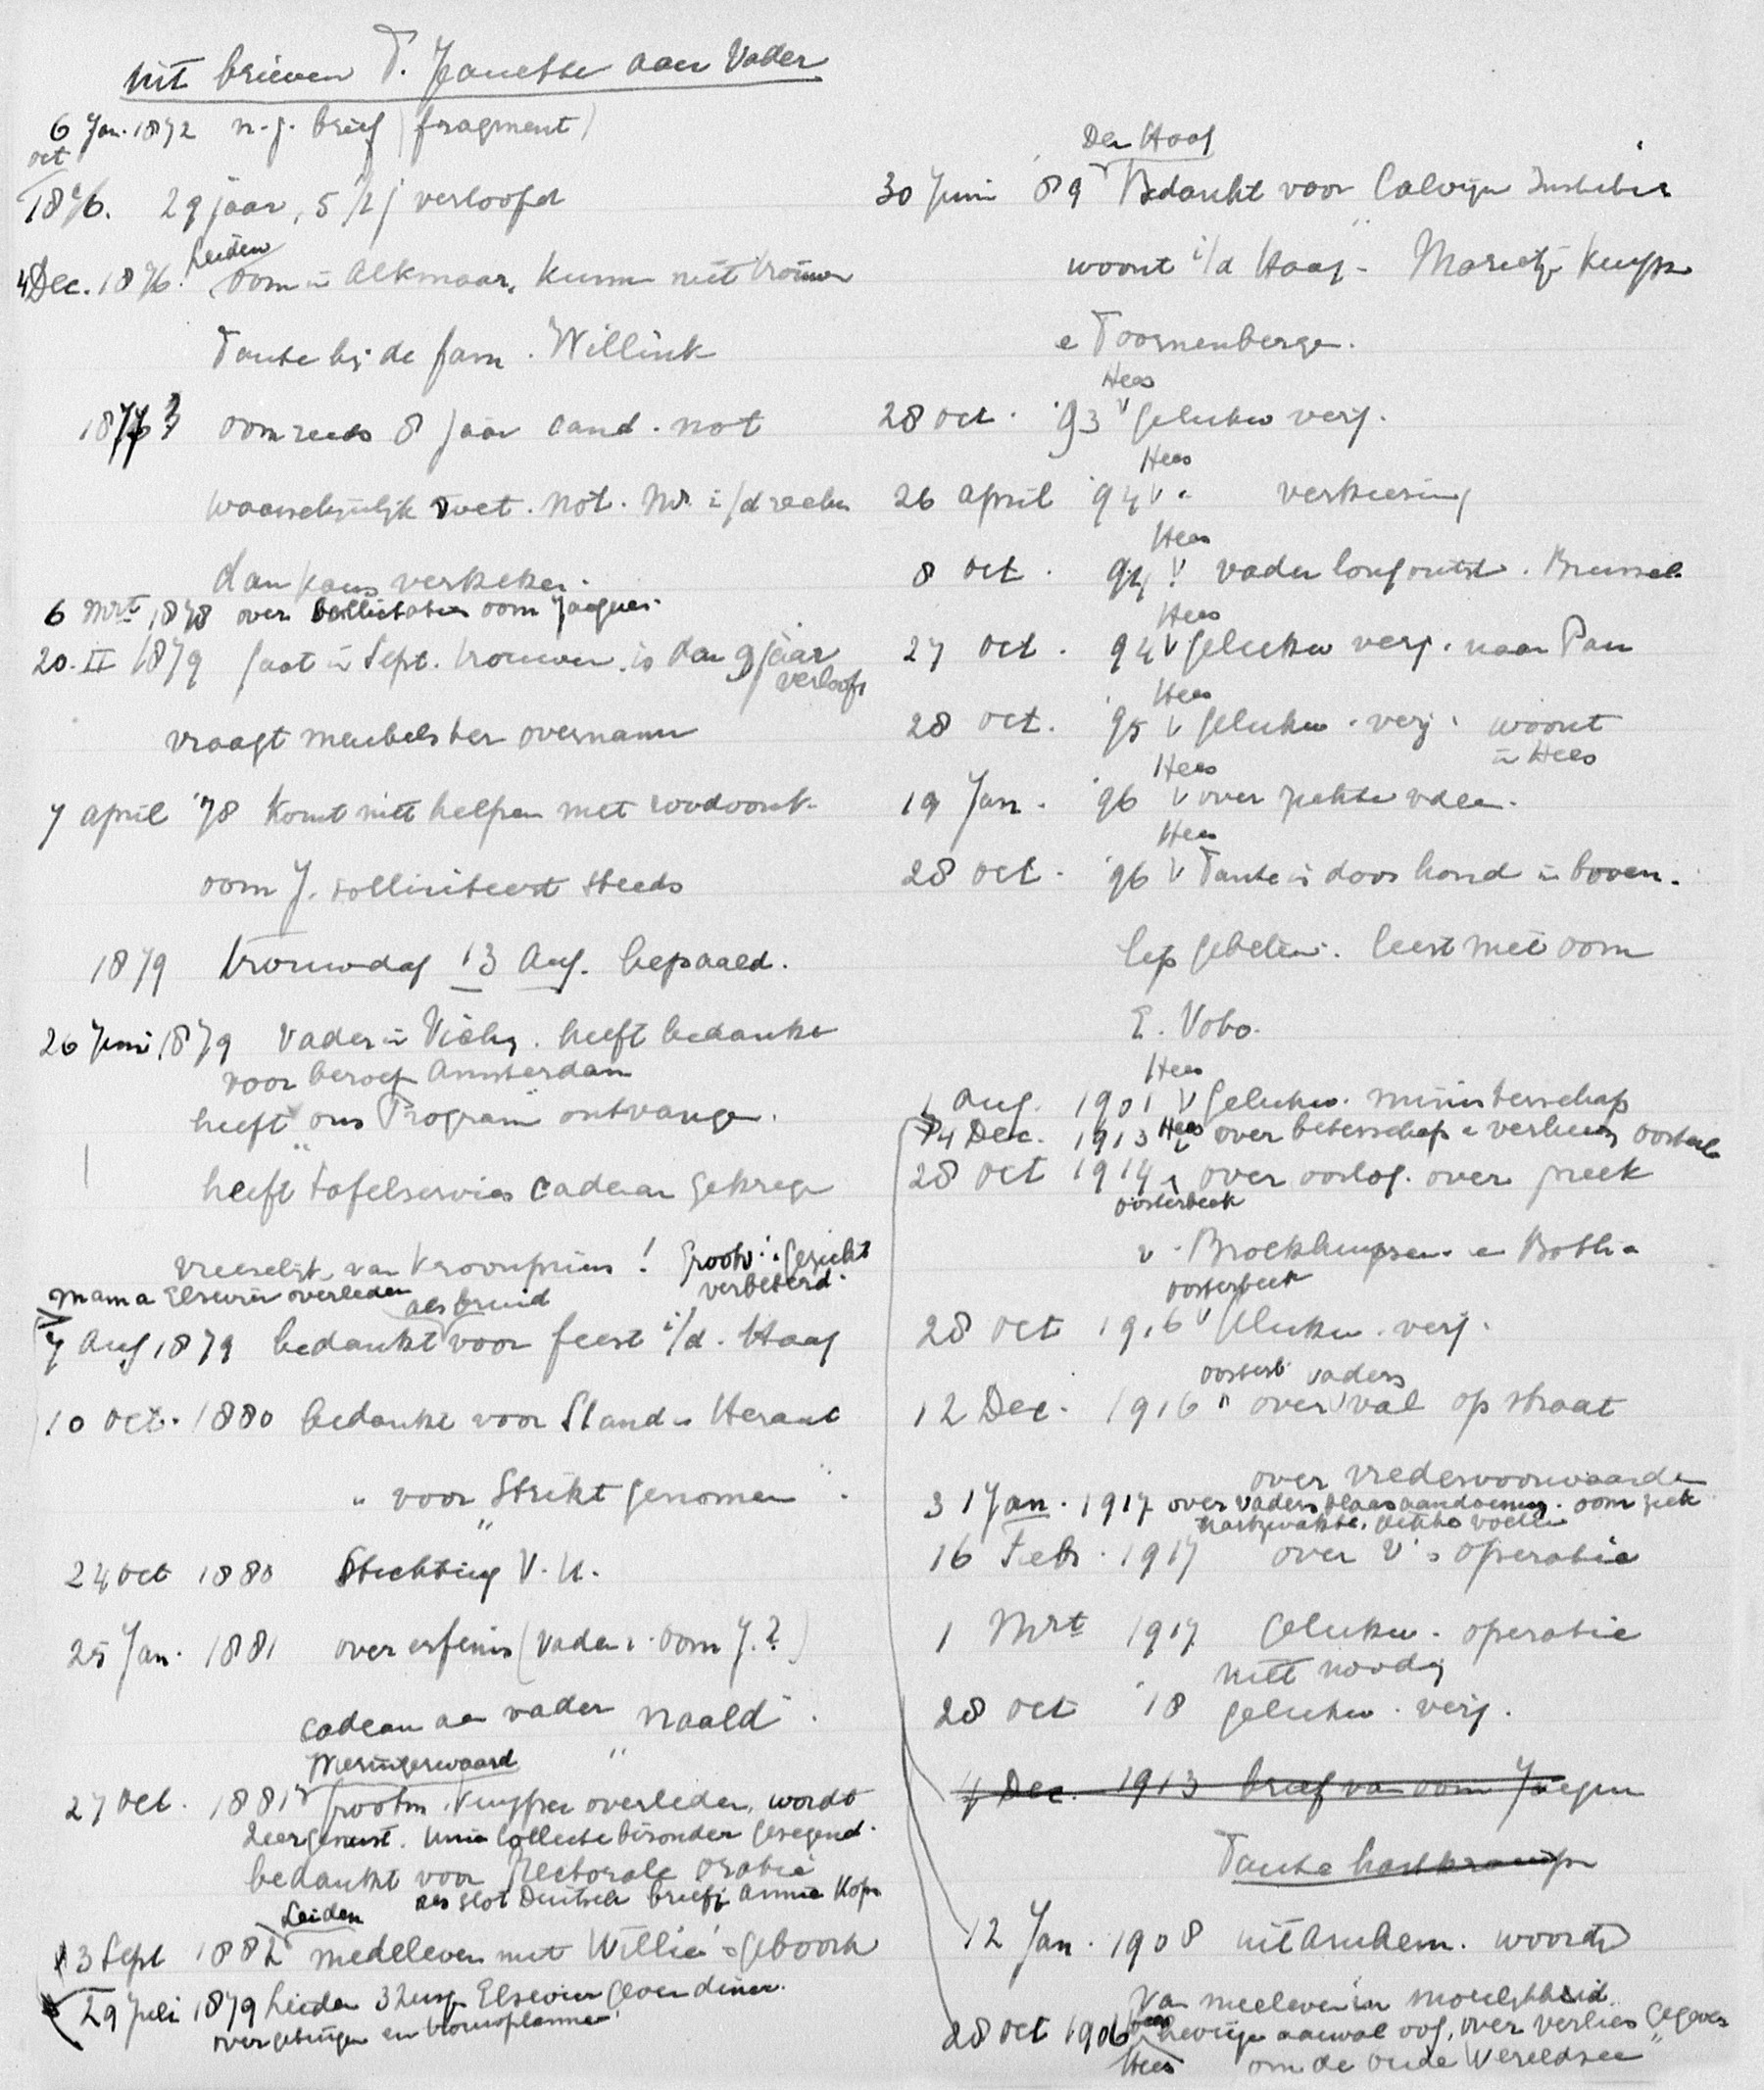 uit brieven T. Jeanette aan Vader
6 Jan. 1872 n.j. brief (fragment)
oct
1876. 29 jaar, 5 1/2 j verloofd
Leiden
4 Dec. 1876. oom in Alkmaar, kunn niet trouwen
Tante bij de fam. Willink
1877? oom reeds 8 jaar cand. not
waarschijnlijk wet. not. Mr. i/d rechten
dan kans verkeken.
6 Mrt 1878 over sollicitaties oom Jacques.
20. II 1879 gaat in Sept. trouwen, is dan 9 jaar
verloofd
vraagt meubels ter overname
7 april '78 Komt niet helpen met roodvonk.
oom J. solliciteert steeds
1879 trouwdag 13 Aug. bepaald.
26 Juni 1879 Vader in Vichy. heeft bedankt
voor beroep Amsterdam
heeft "ons Program" ontvangen.
heeft tafelservies cadeau gekregen
vreeselijk van Kroonprins! Grootv.'s gezicht
verbeterd.
Mama Elsevier overleden
als bruid
7 Aug 1879 bedankt voor feest i/d. Haag
10 oct. 1880 bedankt voor Stand. Heraut
" voor "Strikt genomen".
24 oct 1880 Stichting V.U.
25 Jan. 1881 over erfenis (vader. oom J.?)
cadeau aan vader "naald".
Wieringerwaard
27 oct. 1881 Grootm. Kuyper overleden, wordt
zeer gemist. Unie Collecte bizonder gezegend.
bedankt voor Rectorale oratie
als slot Duitsch briefje Annie Kops
Leiden
13 Sept 1882 medeleven met Willie's geboorte
29 Juli 1879 Leiden Elsevier geven diner.
over getuigen en trouwplannen
Den Haag
30 Juni 89 Bedankt voor Calvijn Institutie
woont i/d Haag. Marietje Kuyper
e Toornenbergen.
Hees
28 oct. '93 Gelukw verj.
Hees
26 april '94 " verkiezing
Hees
8 oct. 94 vader longontst. Brussel.
Hees
27 oct. 94 gelukw verj. naar Pau
Hees
28 oct. 95 gelukw. verj. woont
in Hees
Hees
19 Jan. '96 over ziekte vader.
Hees
28 oct. '96 Tante is door hond in boven.
lip gebeten. leest met oom
E. Voto.
Hees
1 Aug. 1901 gelukw. ministerschap
14 Dec. 1913 Hees over beterschap e verhuizing Oosterb
28 oct 1914 over oorlog. over preek
oosterbeek
v. Broekhuyzen. e Botha
oosterbeek
28 oct 1916 Gelukw. verj.
oosterb. vaders
12 Dec. 1916 over val op straat
over vredesvoorwaarden
31 Jan. 1917 over vaders blaasaandoening. oom ziek
hartzwakte,
16 Febr. 1917 over V's operatie
1 Mrt 1917 Gelukw. operatie
niet noodig
28 oct '18 gelukw. verj.
4 Dec. 1913 brief van oom Jacques
Tante hartkramp
12 Jan. 1908 uit Arnhem. woorden
van meeleven in moeilijkheid.
28 oct 1906 hevige aanval oog, over verlies gegevens
Hees om de oude Wereldzee"